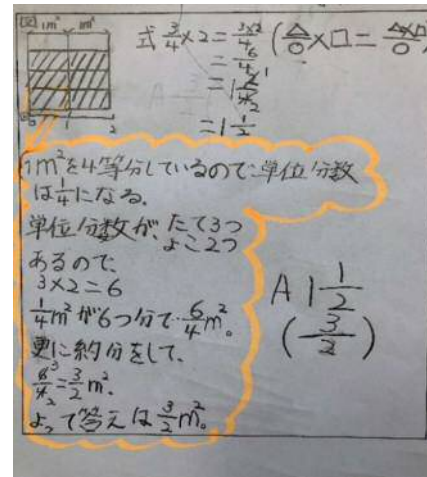 図
1m² 1m²
0 1 2
式 3/4×2 = 3×2/4 (△/○×□=△×□/○)
= 6/4
= 1 2/4 1/2
= 1 1/2
1m²を4等分しているので単位分数
は1/4になる。
単位分数が、たて3つ
よこ2つ
あるので、
3×2=6
1/4m²が6つ分で、6/4m²。
更に約分をして、
6/4 3/2=3/2m²。
よって答えは3/2m²。
A 1 1/2
(3/2)